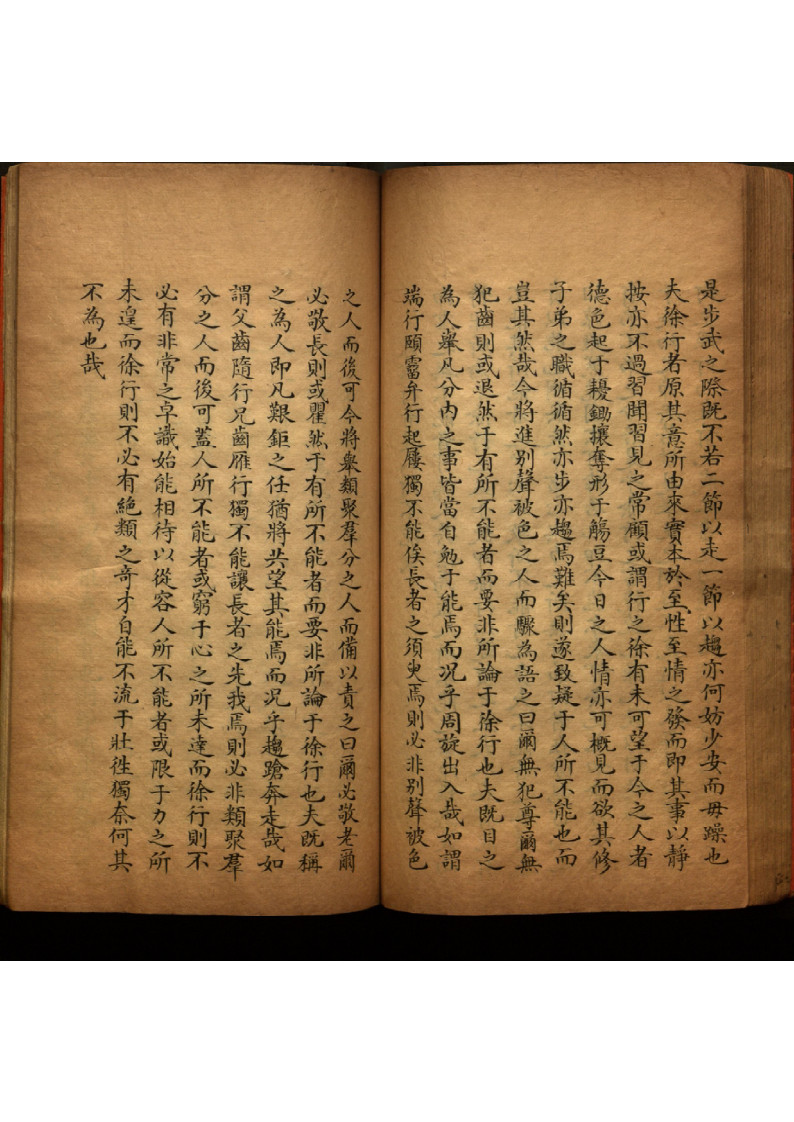 是步武之際既不若二節以走一節以趨亦何妨少安而毋躁也
夫徐行者原其意所由來實本於至性至情之發而即其事以靜
按亦不過習聞習見之常顧或謂行之徐有未可望于今之人者
德色起于耰鋤攘奪形于觴豆今日之人情亦可概見而欲其修
子弟之職循循然亦步亦趨焉難矣則遂致疑于人所不能也而
豈其然哉今將進别聲被色之人而驟為語之曰爾無犯尊爾無
犯齒則或退然于有所不能者而要非所論于徐行也夫既目之
為人舉凡分内之事皆當自勉于能焉而况乎周旋出入哉如謂
端行頤霤弁行起屨獨不能俟長者之須臾焉則必非别聲被色
之人而後可今將舉類聚羣分之人而備以責之曰爾必敬老爾
必敬長則或瞿然于有所不能者而要非所論于徐行也夫既稱
之為人即凡艱鉅之任猶將共望其能焉而况乎趨蹌奔走哉如
謂父齒隨行兄齒雁行獨不能讓長者之先我焉則必非類聚羣
分之人而後可蓋人所不能者或窮于心之所未達而徐行則不
必有非常之卓識始能相待以從容人所不能者或限于力之所
未遑而徐行則不必有絕類之奇才自能不流于壯徃獨奈何其
不為也哉